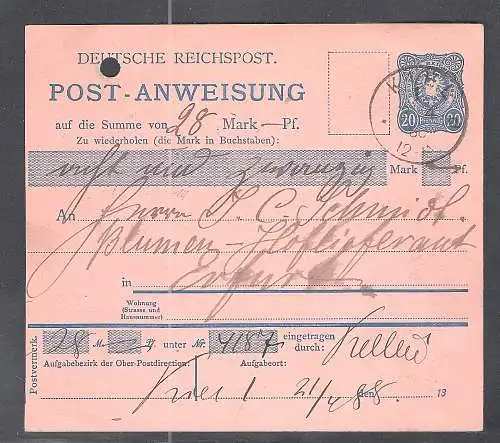 DEUTSCHE REICHSPOST.
POST-ANWEISUNG
auf die Summe von 28 Mark — Pf.
Zu wiederholen (die Mark in Buchstaben):
acht und zwanzig Mark Pf.
An Herrn J. C. Schmidt.
Blumen-Hoflieferant
in Erfurt
Wohnung
(Strasse und
Hausnummer)
Postvermerk.
28 M. — Pf. unter Nr. 4187 eingetragen
durch:
Aufgabebezirk der Ober-Postdirection: Aufgabeort:
Kiel 1 21/4 88. den 18
20 PFENNIG 20
K
88
12-